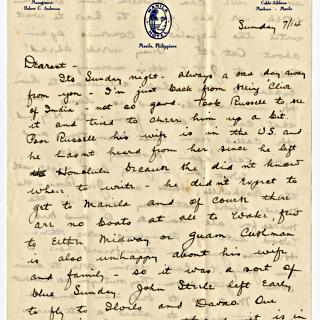 Management-
Robert C. Anderson
Cable Address
Manhote - Manila
MANILA HOTEL
Manila, Philippines
Sunday 7/14
Dearest -
Its Sunday night - always a one day away
from you - I'm just back from seeing "Clive
of India" - not so good. Took Russell to see
it and tried to cheer him up a bit.
Poor Russell his wife is in the U.S. and
he hasnt heard from her since he left
Honolulu because she didn't know
where to write - he didn't expect to
get to Manila and of course there
are no boats at all to Wake, few
to Either Midway or Guam. Cushman
is also unhappy about his wife
and family - so it was a sort of
blue Sunday. John Steele left Early
to fly to Iloilo and Davao. Our
is in